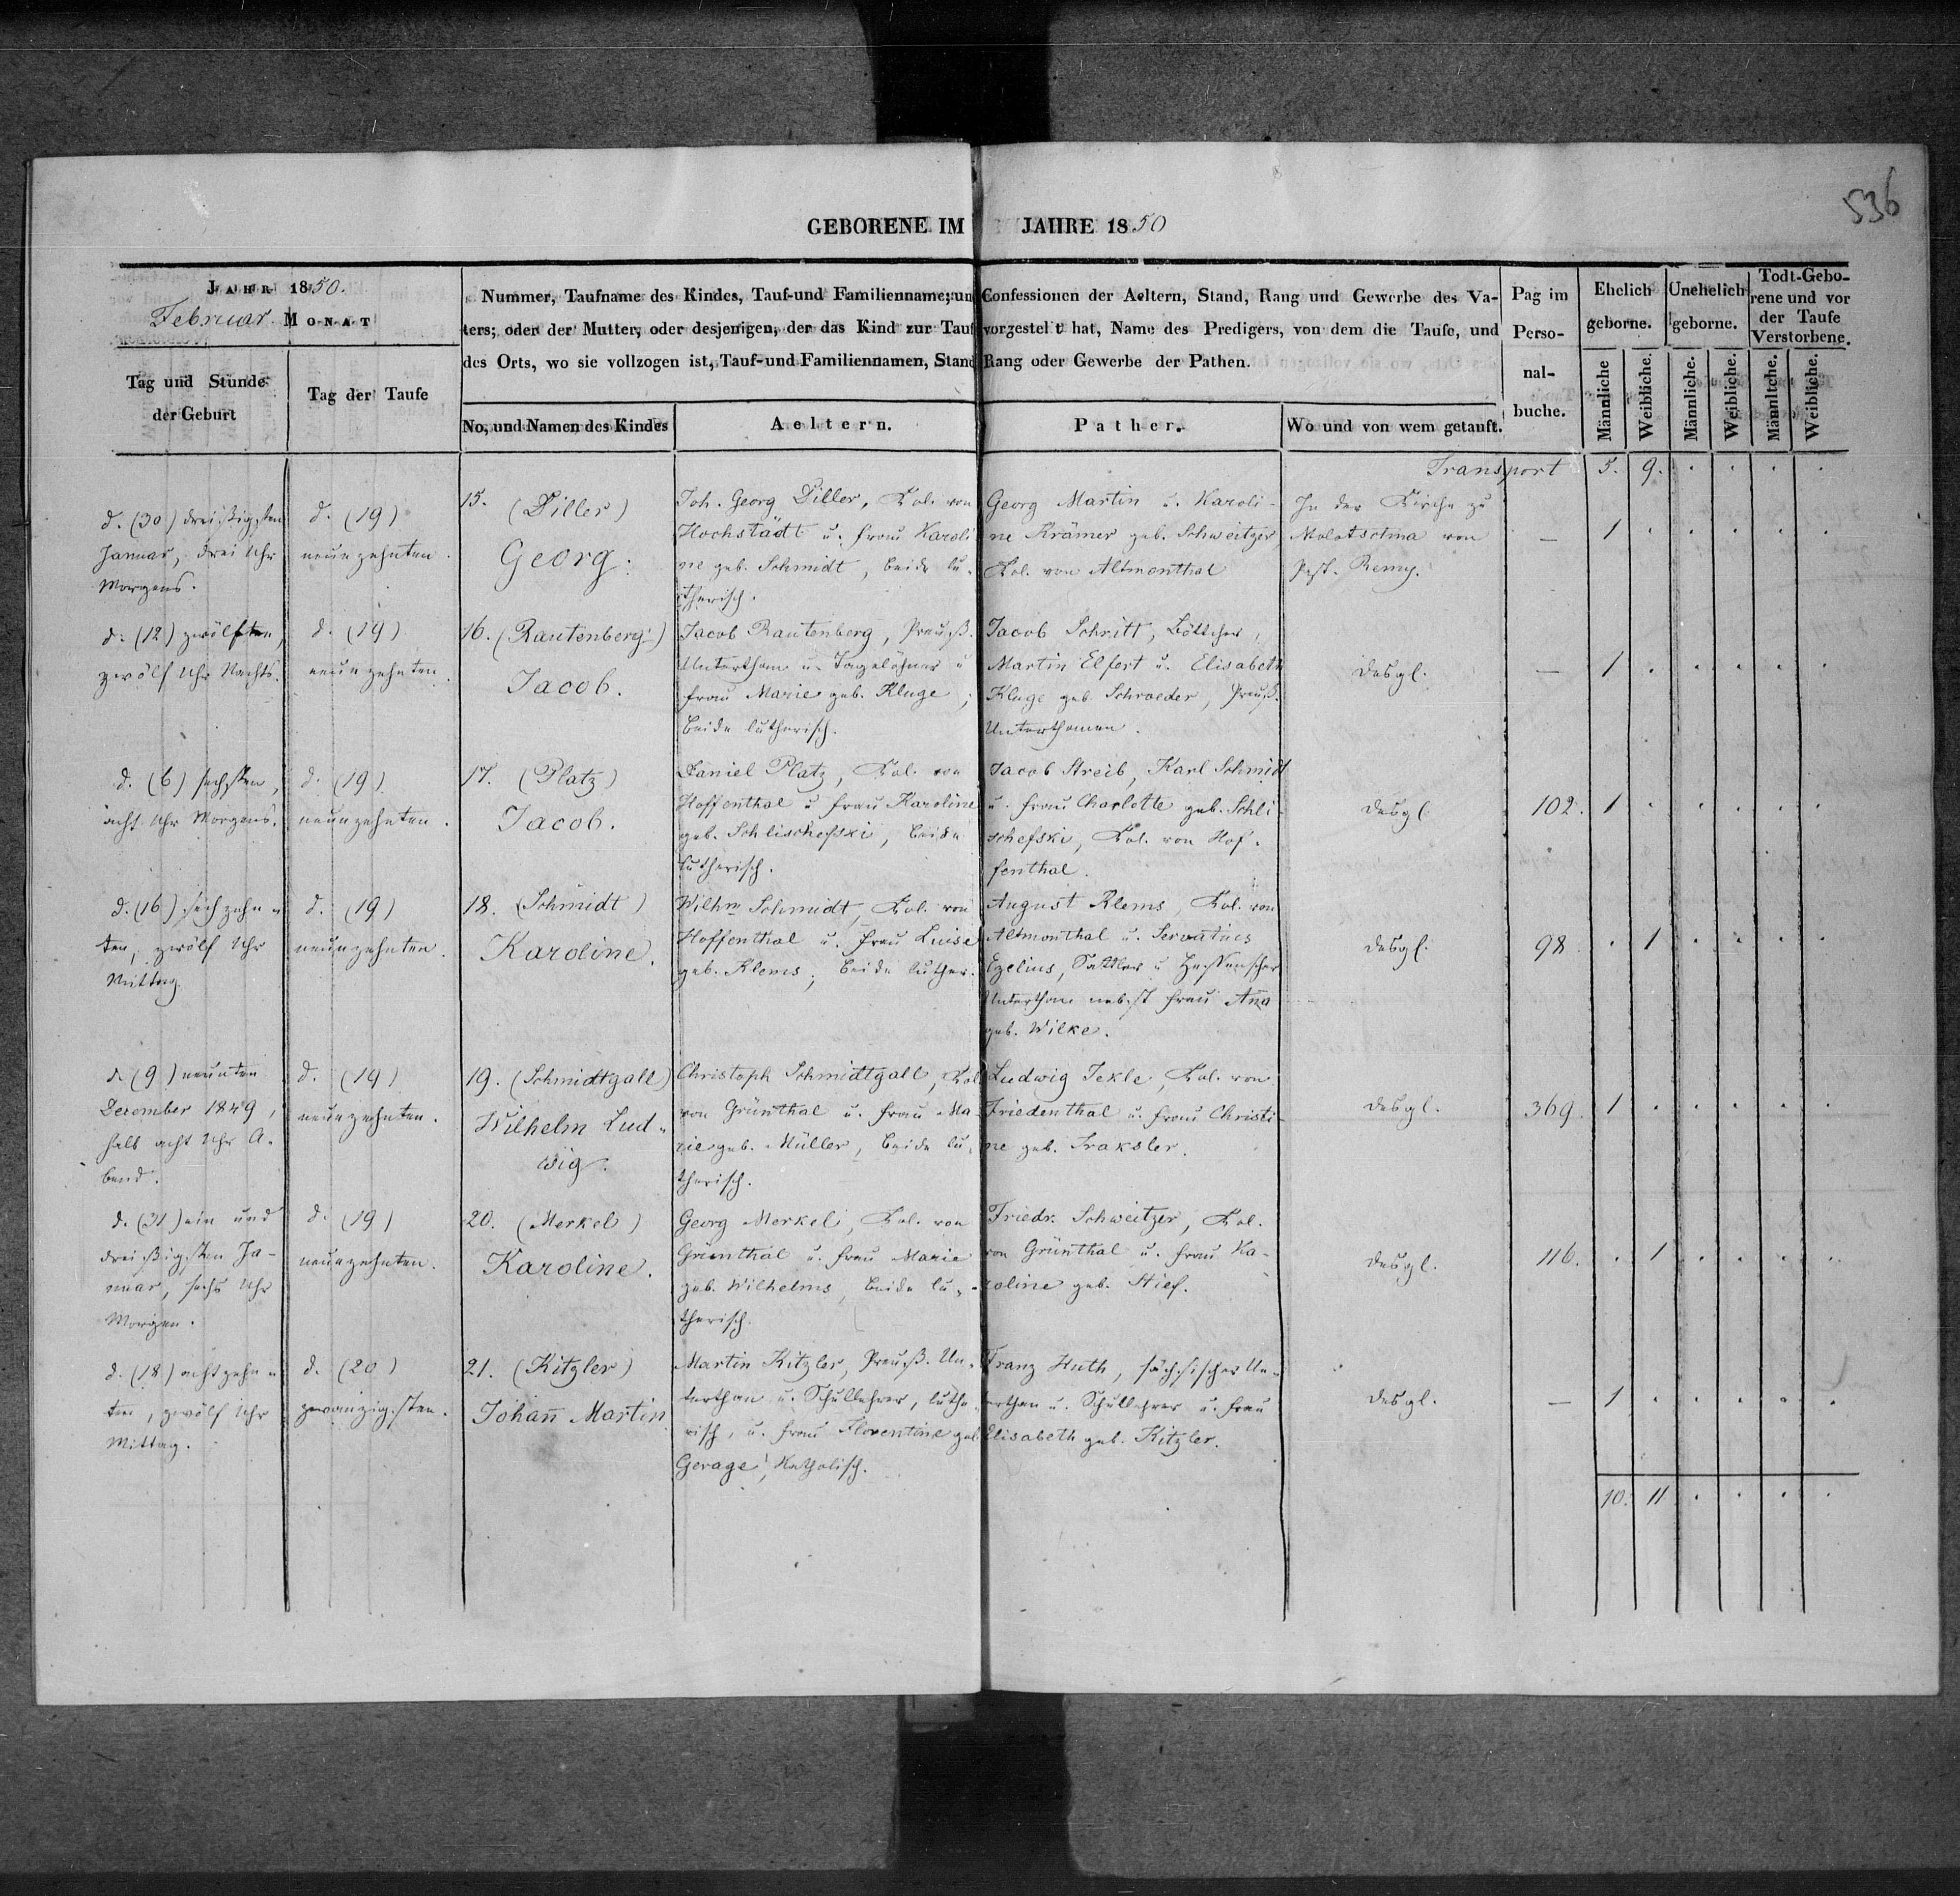 536
GEBORENE IM JAHRE 1850
JAHR 1850.
Februar MONAT
Tag und Stunde
der Geburt
Tag der Taufe
Nummer, Taufname des Kindes, Tauf-und Familienname; und Confessionen der Aeltern, Stand, Rang und Gewerbe des Va-
ters; oder der Mutter, oder desjenigen, der das Kind zur Taufe vorgestellt hat, Name des Predigers, von dem die Taufe, und
des Orts, wo sie vollzogen ist, Tauf-und Familiennamen, Stand Rang oder Gewerbe der Pathen.
No, und Namen des Kindes
Aeltern.
Pather.
Wo und von wem getauft.
Pag im
Perso-
nal-
buche.
Ehelich
geborne.
Unehelich
geborne.
Todt-Gebo-
rene und vor
der Taufe
Verstorbene.
Männliche
Weibliche.
Männliche.
Weibliche.
Männltche.
Weibliche.
Transport 5. 9. . . . .
d. (30) dreißigsten
Januar, drei Uhr
Morgens.
d. (19)
neunzehnten.
15. (Diller)
Georg.
Joh. Georg Diller, Kol. von
Hochstädt u. Frau Karoli
ne geb. Schmidt, beide lu-
therisch.
Georg Martin u. Karoli-
ne Krämer geb. Schweitzer
Kol. von Altmonthal
In der Kirche zu
Molotschna von
Past. Remy.
— 1 . . . . .
d. (12) zwölften,
zwölf Uhr Nachts.
d. (19)
neunzehnten.
16. (Rautenberg)
Jacob.
Jacob Rautenberg, Preuß.
Unterthan u. Tagelöhner u
Frau Marie geb. Kluge;
beide lutherisch.
Jacob Schritt, Böttcher,
Martin Elfert u. Elisabeth
Kluge geb Schroeder, Preuß.
Unterthanen.
desgl.
— 1 . . . . .
d. (6) sechsten,
acht Uhr Morgens.
d. (19)
neunzehnten.
17. (Platz)
Jacob.
Daniel Platz, Kol. von
Hoffenthal u Frau Karoline
geb. Schlischefski, beide
lutherisch.
Jacob Streib, Karl Schmidt
u. Frau Charlotte geb. Schli-
schefski, Kol. von Hof-
fenthal.
desgl.
102. 1 . . . . .
d. (16) sechzehn-
ten, zwölf Uhr
Mittag.
d. (19)
neunzehnten.
18. (Schmidt)
Karoline.
Wilhm Schmidt, Kol. von
Hoffenthal u. Frau Luise
geb. Klems; beide luther.
August Klems, Kol. von
Altmonthal u. Servatius
Egelius, Sattler u Hessenscher
Unterthan nebst Frau Aña
geb. Wilke.
desgl.
98 . 1 . . . .
d. (9) neunten
December 1849,
halb acht Uhr A-
bend.
d. (19)
neunzehnten.
19. (Schmidtgall)
Wilhelm Lud-
wig.
Christoph Schmidtgall, Kol
von Grünthal u. Frau Ma
rie geb. Müller, beide lu-
therisch.
Ludwig Jekle, Kol. von
Friedenthal u. Frau Christi-
ne geb. Traksler.
desgl.
369. 1 . . . . .
d. (31) ein und
dreißigsten Ja-
nuar, sechs Uhr
Morgen.
d. (19)
neunzehnten.
20. (Merkel)
Karoline.
Georg Merkel, Kol. von
Grünthal u. Frau Marie
geb. Wilhelms, beide lu-
therisch.
Friedr. Schweitzer, Kol.
von Grünthal u. Frau Ka-
roline geb. Stief.
desgl.
116. . 1 . . . .
d. (18) achtzehn-
ten, zwölf Uhr
Mittag.
d. (20)
zwanzigsten.
21. (Kitzler)
Johañ Martin
Martin Kitzler, Preuß. Un-
terthan u. Schullehrer, luthe-
risch, u. Frau Florentine geb
Gerage, katholisch.
Franz Huth, sächsischer Un-
terthan u. Schullehrer u. Frau
Elisabeth geb. Kitzler.
desgl.
— 1 . . . . .
10. 11 . . . .